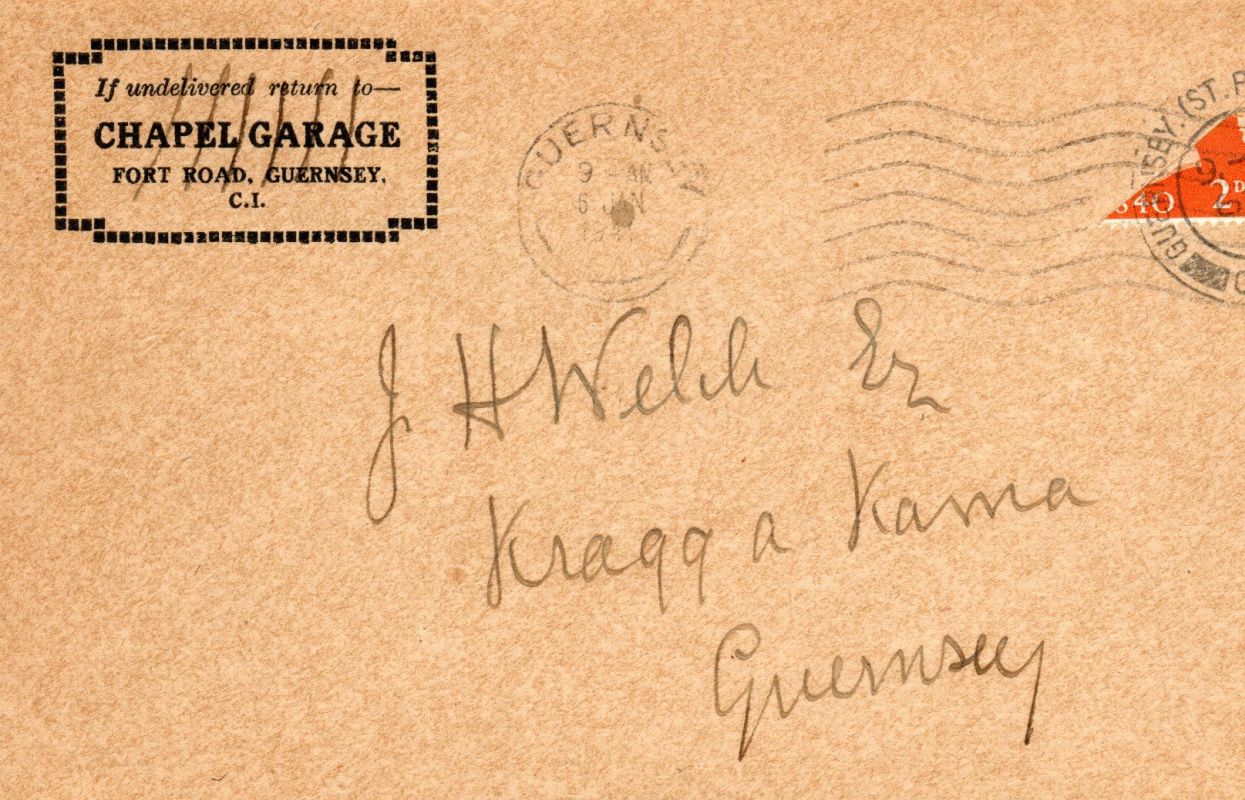 If undelivered return to—
CHAPEL GARAGE
FORT ROAD, GUERNSEY,
C.I.
GUERNSEY
9 - AM
6 JAN
GUERNSEY. (ST. P
840
2D
J H Welch Esq
Kragg a Kama
Guernsey